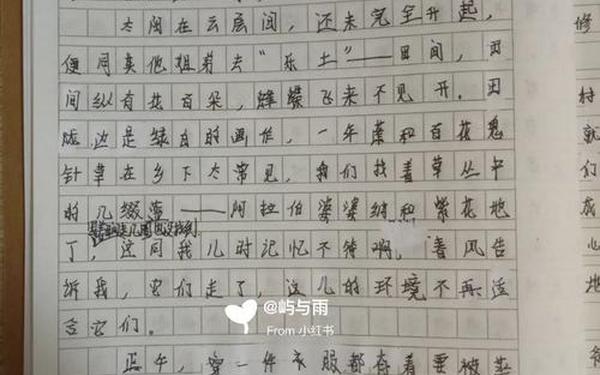 太阳在云层间，还未完全升起，
便同其他祖弟去“乐土”——田间，田
间纵有花百朵，蜂蝶飞来不见开。田
边是绿白的画作，一年蓬和百花鬼
针草在乡下太常见，我们找着草丛中
的几缀蓝——阿拉伯婆婆纳和紫花地
了，这同我儿时记忆不符啊，春风告
诉我，它们走了，这儿的环境不再适
合它们。
正午，穿一件衣服都有着要被蒸
修
村
就
们
成
心
地
@屿与雨
From 小红书